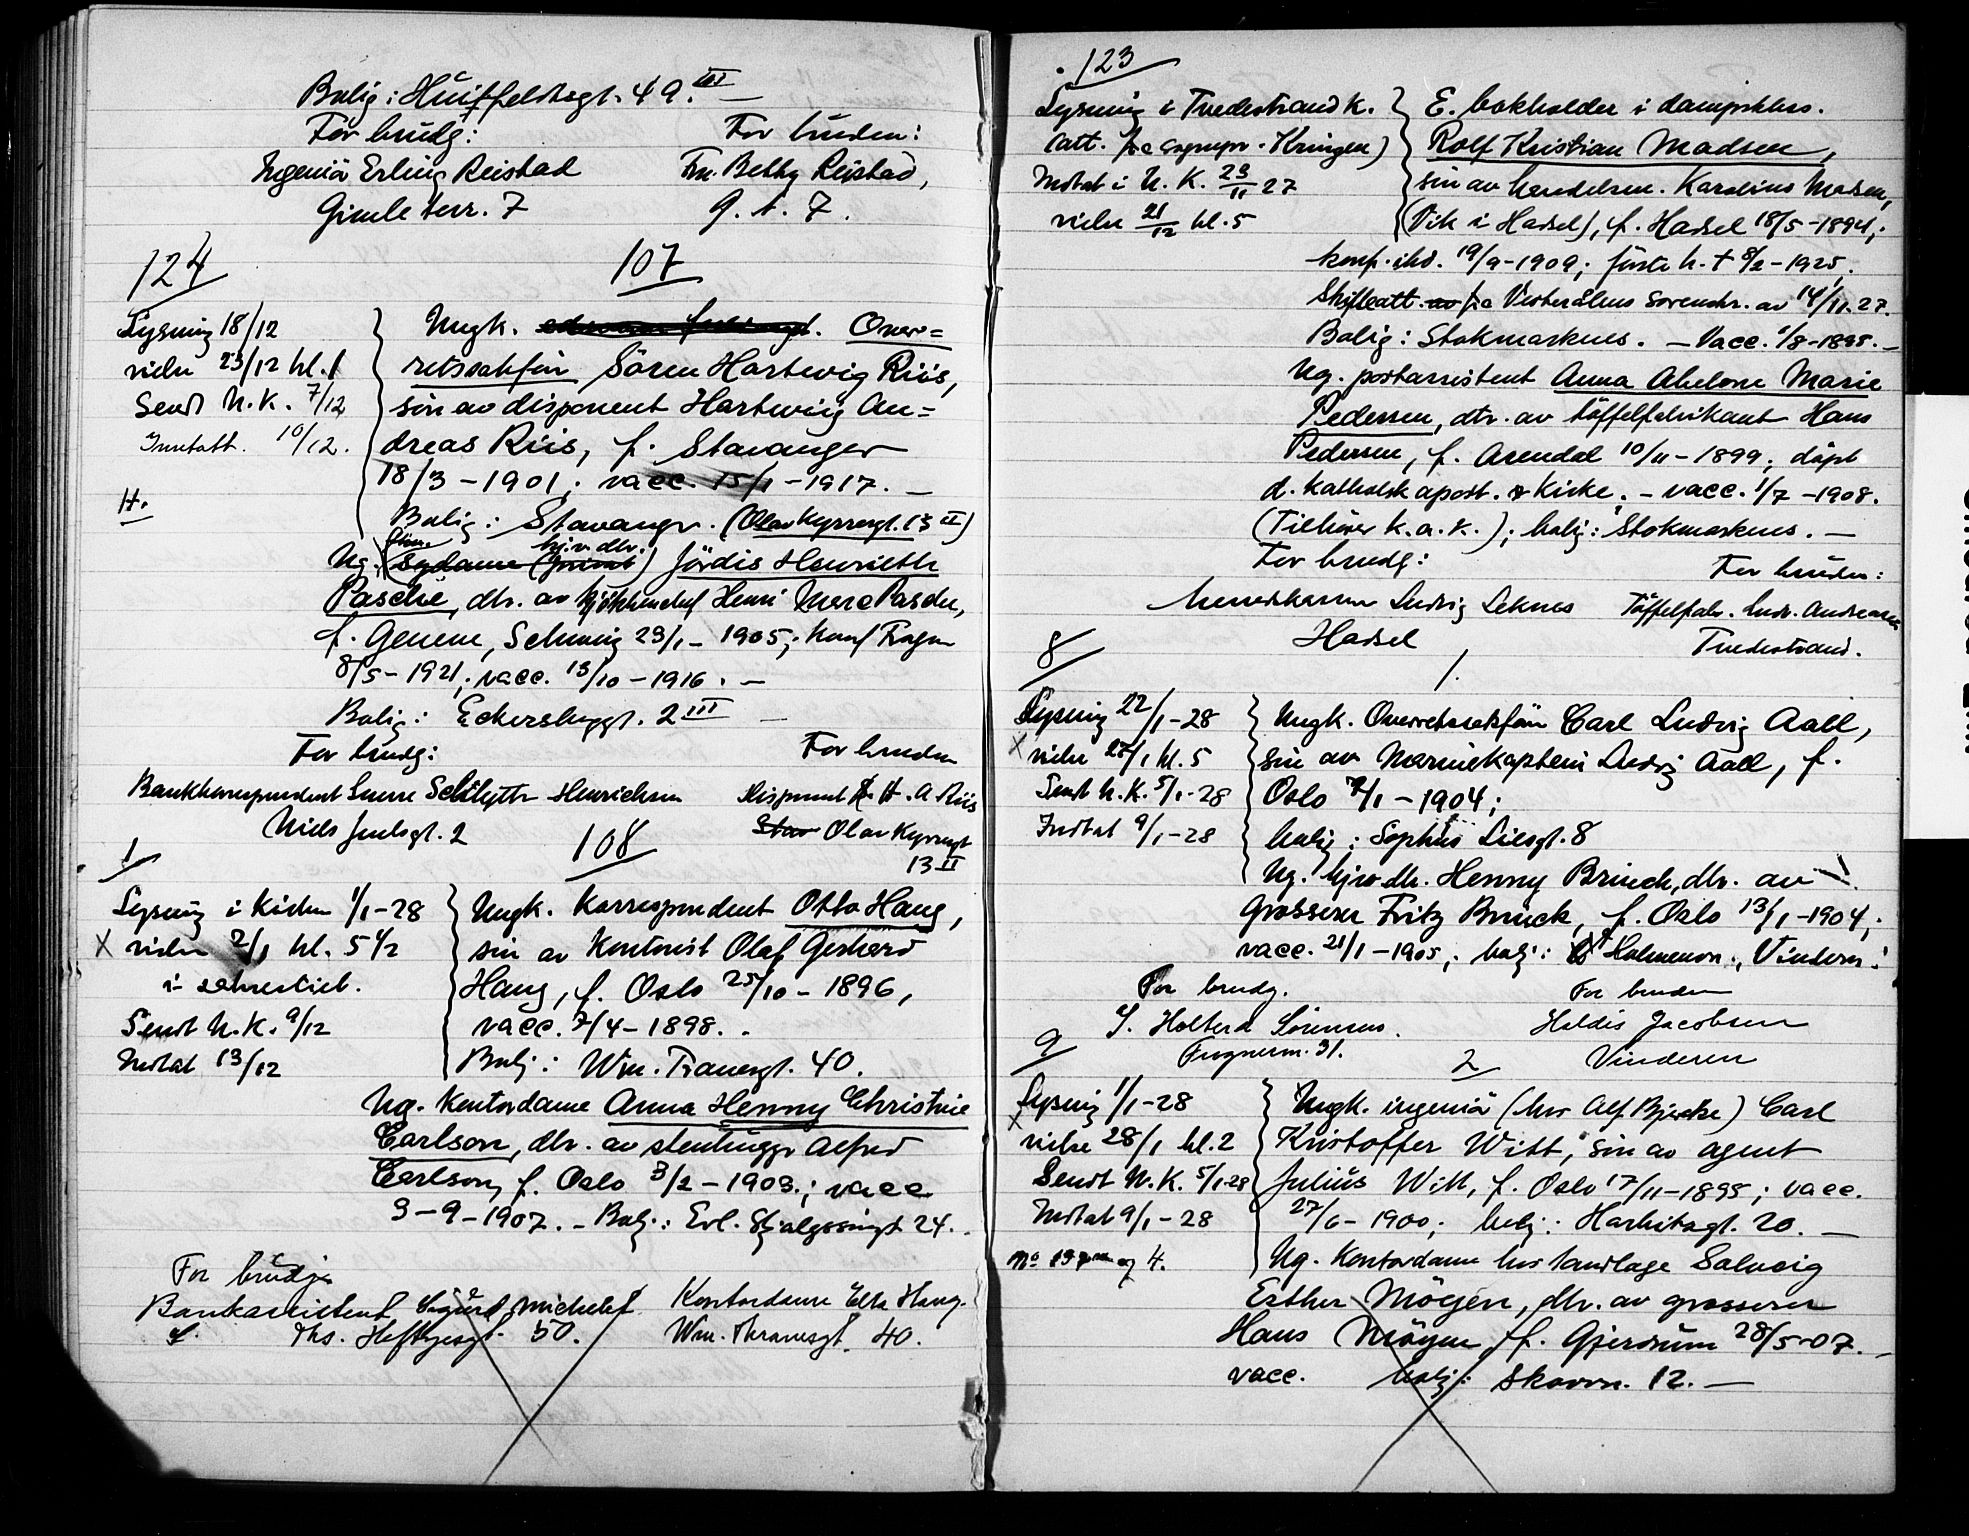 Bolig: Huitfeldtsgt. 49. III —
For brudg: For bruden:
Ingeniø Erling Reistad Fru. Betty Reistad,
Gimle terr. 7 G. t. 7.
124 107
Lysning 18/12
vielse 23/12 kl. 1
Sendt N.K. 7/12
Inntatt. 10/12.
H.
Ungk. Over=
retssakfør Sören Hartwig Riis,
sön av disponent Hartwig An=
dreas Riis, f. Stavanger
18/3 - 1901; vacc. 15/1 - 1917. —
Bolig: Stavanger. (Olav Kyrresgt. 13 II)
Ug. hj.v. dtr. Jördis Henriette
Pasche, dtr. av kjökkenchef Henri Marc Pasche,
f. Geneve, Schweiz 23/1 - 1905; konf Frogn
8/5 - 1921; vacc. 13/10 - 1916. —
Bolig: Eckersbergsgt. 2 III —
For brudg: For bruden
Bankkorrespondent Sverre Schlytter Henrichsen Disponent H. A. Riis
Niels Juelsgt. 2 Stav Olav Kyrresgt
13 II
1 108
Lysning i Kirken 1/1-28
X vielse 2/1 kl. 5 1/2
i sakrestiet.
Sendt N.K. 9/12
Indtat 13/12
Ungk. Korrespondent Otto Haug,
sön av Kontorist Olaf Gerhard
Haug, f. Oslo 25/10 - 1896,
vacc. 7/4 - 1898. .
Bolig: Wm. Tranesgt. 40.
Ug. Kontordame Anna Henny Christine
Carlson, dtr. av stenhugger Alfred
Carlson, f. Oslo 3/2 - 1903.; vacc
3-9-1907. - Bolig: Erl. Skjalgssönsgt 24.
For brudg
Bankassistent, Sigurd Michelet Kontordame Elsa Haug.
Ths. Heftyesgt. 50. Wm. Thranesgt. 40.
123
Lysning i Tvedestrand k.
(att. fra sognepr. Kringen)
Indtat i U. K. 23/11 27
vielse 21/12 kl. 5
E. bokholder i dampskbss.
Rolf Kristian Madsen,
sön av handelsm. Karolius Madsen,
(Vik i Hadsel), f. Hadsel 18/5 - 1894;
konf. ibd. 19/9 - 1909; første h. † 8/2 - 1925;
Skifteatt. av fra Vesterålens Sorenskr. av 14/11.27.
Bolig: Stokmarknes. — Vacc. 1/8 - 1895. —
Ug. postassistent Anna Abelone Marie
Pedersen, dtr. av töffelfabrikant Hans
Pedersen, f. Arendal 10/11 - 1899; döpt
d. katholsk apost. Kirke; - vacc. 1/7 - 1908.
(Tilhörer k.a.k.); bolig: Stokmarknes. —
For brudg: For bruden:
Ludvig Leknes Töffelfabr. Ludv. Andreasen
Hadsel Tvedestrand.
8 1.
Lysning 22/1-28
X vielse 28/1 kl. 5
Sendt N.K. 5/1-28
Indtat 9/1-28
Ungk. Overretssakför Carl Ludvig Aall,
sön av Marinekaptein Ludvig Aall, f.
Oslo 9/1 - 1904;
bolig: Sophus Liesgt. 8
Ug. hjv. dtr. Henny Brinck, dtr. av
Grosserer Fritz Brinck, f. Oslo 13/1 - 1904;
vacc. 21/1 - 1905; bolig: Holmenvn., Vindern.
For brudg. For bruden
Holterd Sörensen. Haldis Jacobsen
Frognerm. 31. Vinderen
9 2
Lysning 1/1-28
X vielse 28/1 kl. 2
Sendt N.K. 5/1-28
Indtat 9/1-28
og H.
Ungk. ingeniø (hos Alf Bjercke) Carl
Kristoffer Witt, sön av agent
Julius Witt, f. Oslo 17/11 - 1895; vacc.
27/6 - 1900; bolig: Harbitzgt. 20. —
Ug. Kontordame hos tandlæge Solveig
Esther Möyen, dtr. av grosserer
Hans Möyen, f. Gjerdrum 28/5-07. —
vacc. bolig: Skovvn. 12. —